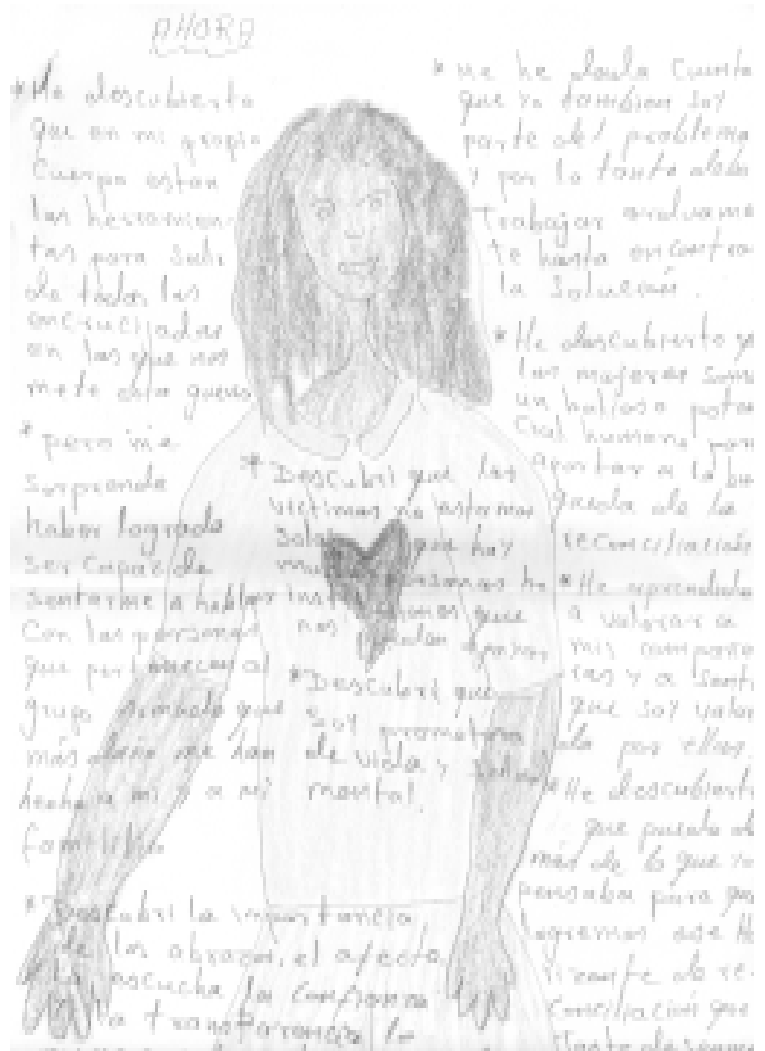 AHORA
* He descubierto
que en mi propio
Cuerpo estan
las herramien
tas para salir
de todas las
encrucijadas
en las que nos
mete esta guerra
* pero me
sorprende
haber logrado
ser capaz de
sentarme a hablar
Con las personas
que pertenecen al
grupo armado que
más daño me han
hecho a mi y a mi
familia
* Descubri la importancia
de los abrazos, el afecto,
la escucha la confianza
la transparencia lo
* Descubri que las
victimas no estamos
solas que hay
personas
que
nos ayudan apoyar
* Descubri que
soy promotora
de vida y salud
mental.
* me he dado Cuenta
que yo tambien soy
parte del problema
y por lo tanto debo
Trabajar arduame
te hasta encontra
la Solución.
* He descubierto q
las mujeres somo
un valioso poten
cial humano para
aportar a la bu
queda de la
reconciliación
* He aprendido
a valorar a
mis compañe
ras y a senti
que soy valora
da por ellas.
* He descubiert
que puedo da
más de lo que yo
pensaba para que
logremos ese Ho
rizonte de re-
conciliación que
tanto deseamo